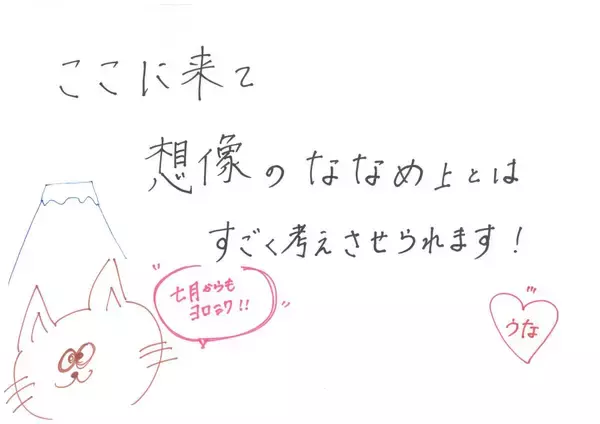 ここに来て
想像のななめ上とは
すごく考えさせられます！
七月からも
ヨロニク!!
うな